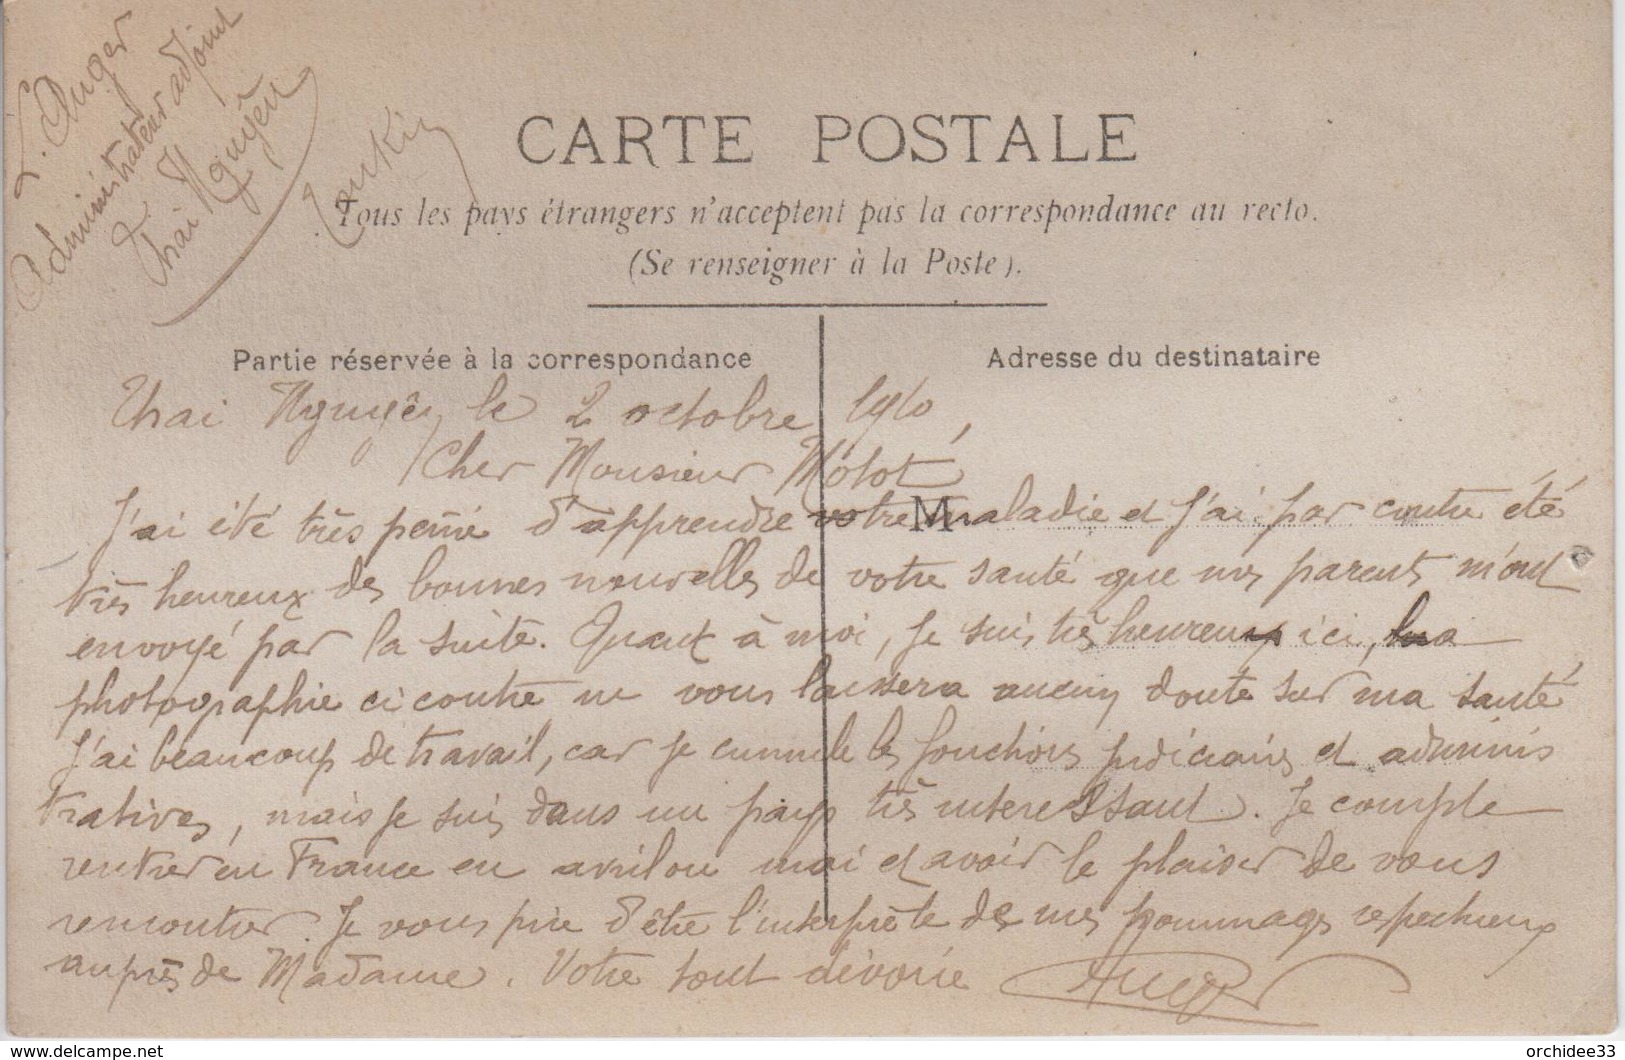 L. Auger
Administrateur adjoint
Thai Nguyên
Tonkin
CARTE POSTALE
Tous les pays étrangers n'acceptent pas la correspondance au recto.
(Se renseigner à la Poste).
Partie réservée à la correspondance
Adresse du destinataire
Thai Nguyên le 2 octobre 1910,
Cher Monsieur Molot
M
J'ai été très peiné d'apprendre votre maladie et j'ai par contre été
très heureux des bonnes nouvelles de votre santé que mes parents m'ont
envoyé par la suite. Quant à moi, je suis très heureux ici, la
photographie ci contre ne vous laissera aucun doute sur ma santé
J'ai beaucoup de travail, car je cumule les fonctions judiciaires et adminis
tratives, mais je suis dans un pays très interessant. Je compte
rentrer en France en avril ou mai et avoir le plaisir de vous
rencontrer. Je vous prie d'être l'interprète de mes hommages respectueux
auprès de Madame. Votre tout dévoué Auger
www.delcampe.net
orchidee33